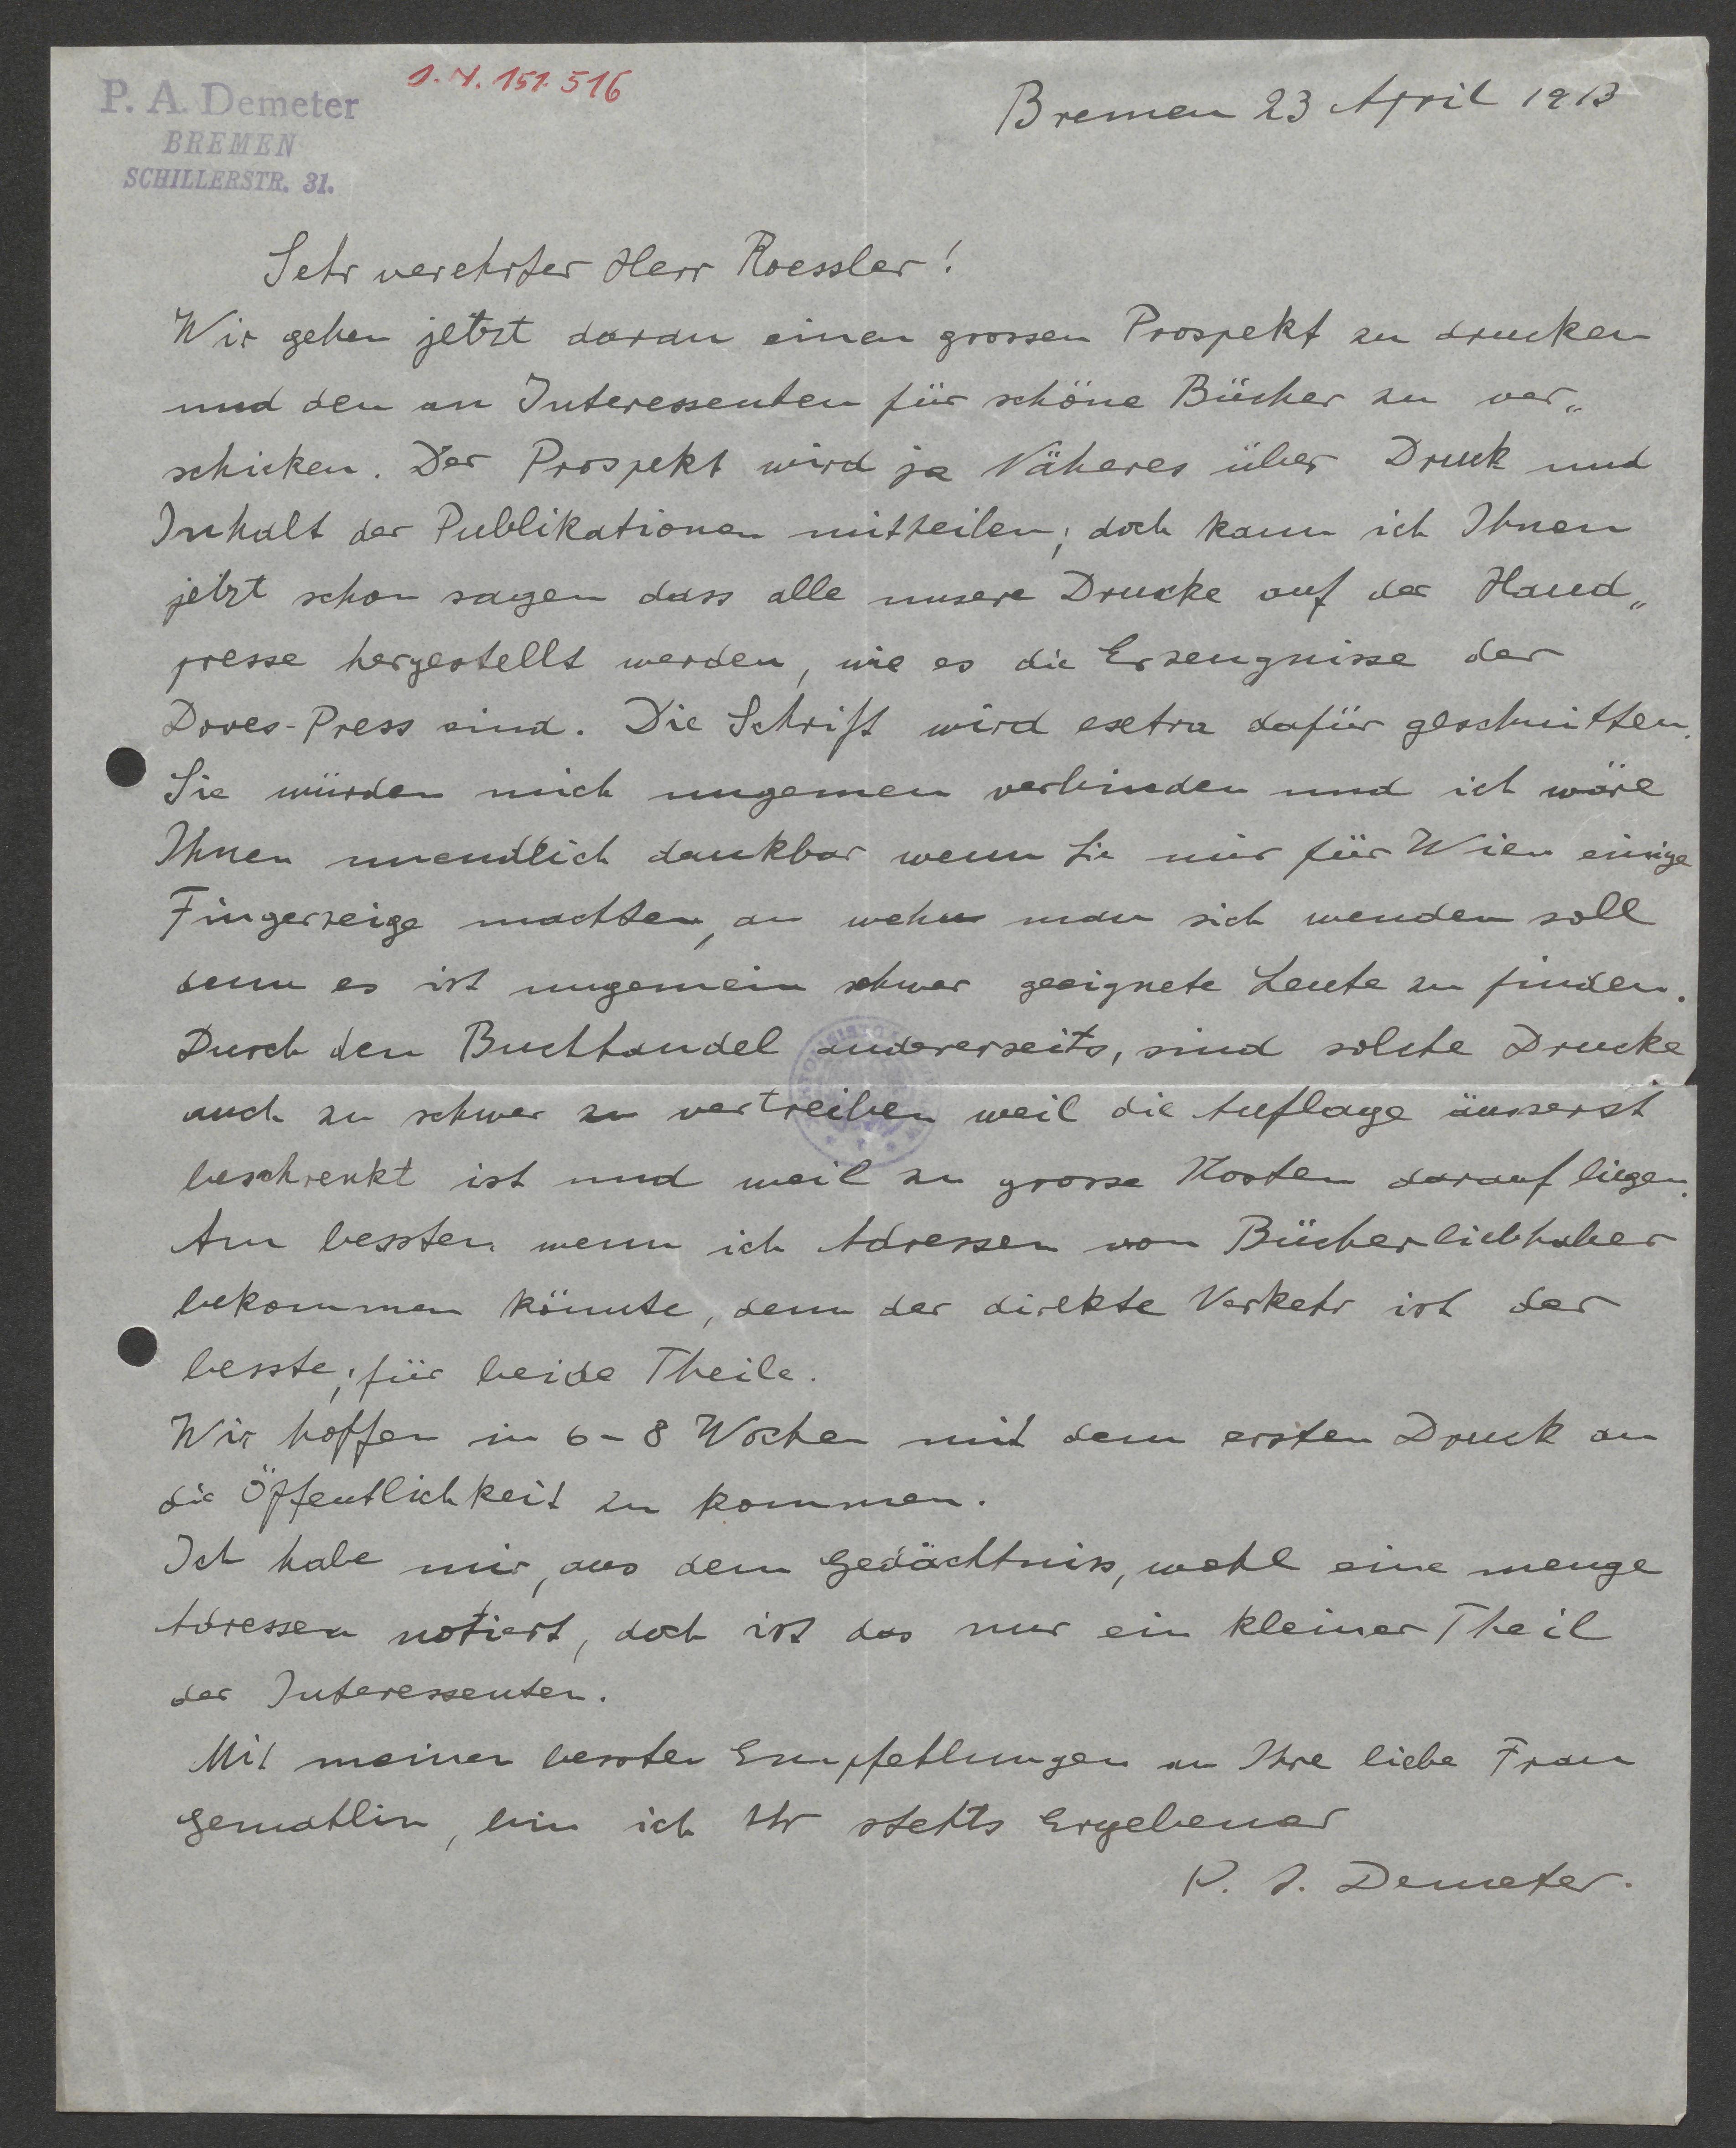 P. A. Demeter
BREMEN
SCHILLERSTR. 31.
I. N. 151.516
Bremen 23 April 1913
Sehr verehrter Herr Roessler!
Wir gehen jetzt daran einen grossen Prospekt zu drucken
und den an Interessenten für schöne Bücher zu ver„
schicken. Der Prospekt wird ja Näheres über Druck und
Inhalt der Publikationen mittheilen; doch kann ich Ihnen
jetzt schon sagen dass alle unsere Drucke auf der Hand„
presse hergestellt werden, wie es die Erzeugnisse der
Doves-Press sind. Die Schrift wird extra dafür geschnitten.
Sie würden mich ungemen verbinden und ich wäre
Ihnen unendlich dankbar wenn Sie mir für Wien einige
Fingerzeige machten, an wehm man sich wenden soll
denn es ist ungemein schwer geeignete Leute zu finden.
Durch den Buchhandel andererseits, sind solche Drucke
auch zu schwer zu vertreiben weil die Auflage äusserst
beschrenkt ist und weil zu grosse Kosten darauf liegen.
Am bessten wenn ich Adressen von Bücherliebhaber
bekommen könnte, denn der direkte Verkehr ist der
besste; für beide Theile.
Wir hoffen in 6-8 Wochen mit dem ersten Druck an
die Öffentlichkeit zu kommen.
Ich habe mir, aus dem Gedächtniss, wohl eine menge
Adressen notiert, doch ist das nur ein kleiner Theil
der Interessenten.
Mit meinen bessten Empfehlungen an Ihre liebe Frau
Gemahlin, bin ich Ihr stehts Ergebener
P. A. Demeter.